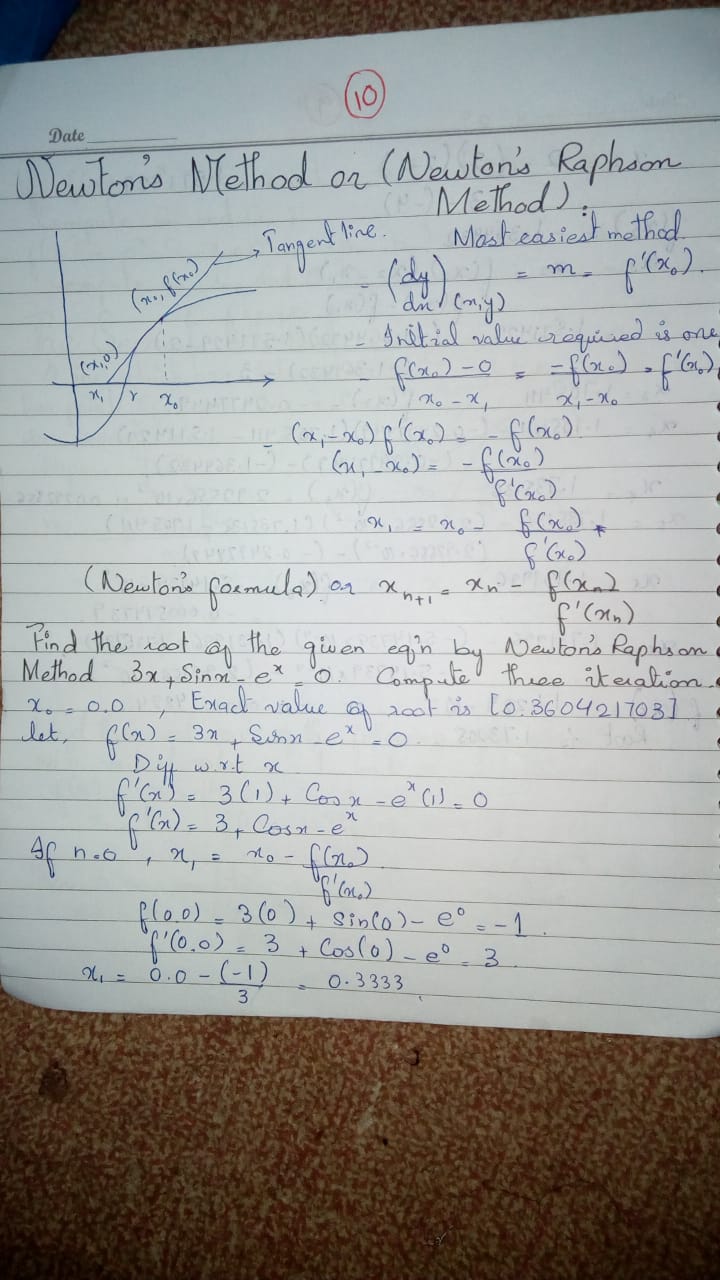 10
Date
Newton's Method or (Newton's Raphson
Method).
Tangent line. Most easiest method
(x₀, f(x₀)) - (dy/dx)(x,y) = m = f'(x₀).
- Initial value required is one
(x₁,0) - f(x₀) - 0 / x₀ - x₁ = -f(x₀) / x₁ - x₀ = f'(x₀)
x₁ r x₀
- (x₁ - x₀) f'(x₀) = - f(x₀)
(x₁ - x₀) = - f(x₀) / f'(x₀)
x₁ = x₀ - f(x₀) / f'(x₀)
(Newton's formula) or xₙ₊₁ = xₙ - f(xₙ) / f'(xₙ)
Find the root of the given eq'n by Newton's Raphson
Method 3x + Sinx - eˣ = 0. Compute three iteration.
x₀ = 0.0 , Exact value of root is [0.360421703]
let, f(x) = 3x + Sinx - eˣ = 0
Diff w.r.t x
f'(x) = 3(1) + Cosx - eˣ(1) = 0
f'(x) = 3 + Cosx - eˣ
If n=0 , x₁ = x₀ - f(x₀) / f'(x₀)
f(0.0) = 3(0) + Sin(0) - e⁰ = -1.
f'(0.0) = 3 + Cos(0) - e⁰ = 3
x₁ = 0.0 - (-1) / 3 = 0.3333